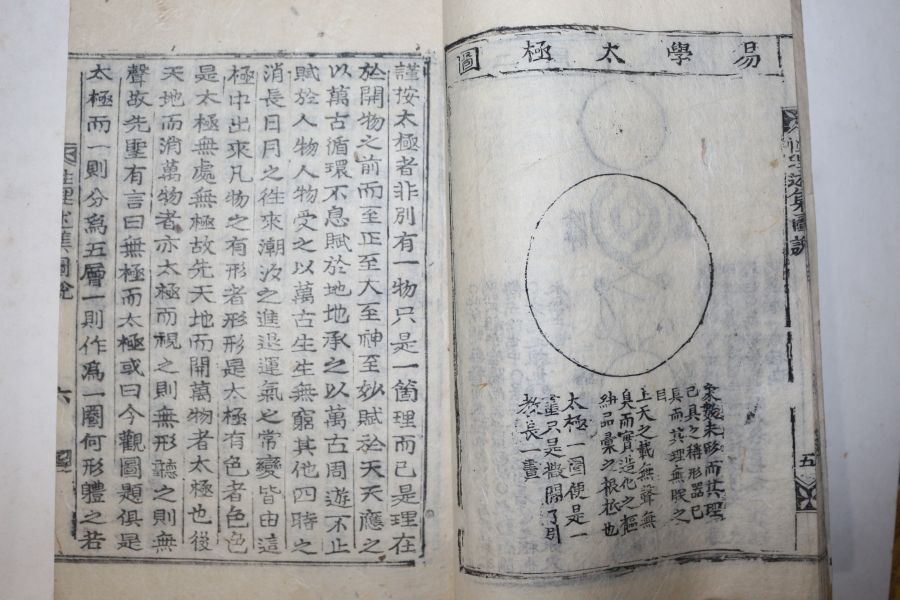 易學太極圖
象數未形而其理
已具之稱形器已
具而其理無朕之
目
上天之載無聲無
臭而實造化之樞
紐品彙之根柢也
太極一圖便是一
畫只是撒開了引
教長一畫
五
謹按太極者非別有一物只是一箇理而已是理在
於開物之前而至正至大至神至妙賦於天天應之
以萬古循環不息賦於地地承之以萬古周遊不止
賦於人物人物受之以萬古生生無窮其他四時之
消長日月之徃來潮汐之進退運氣之常變皆由這
極中出來凡物之有形者形形是太極有色者色色
是太極無處無極故先天地而開萬物者太極也後
天地而消萬物者亦太極而視之則無形聽之則無
聲故先聖有言曰無極而太極或曰今觀圖題俱是
太極而一則分爲五層一則作爲一圈何形體之若
性理 圖說
六